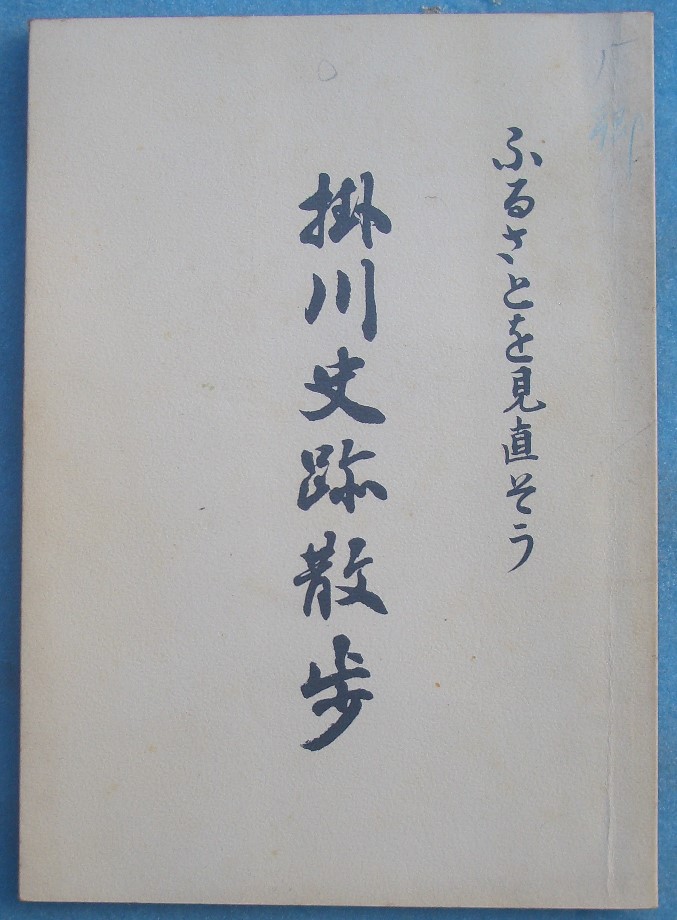 ふるさとを見直そう
掛川史跡散歩